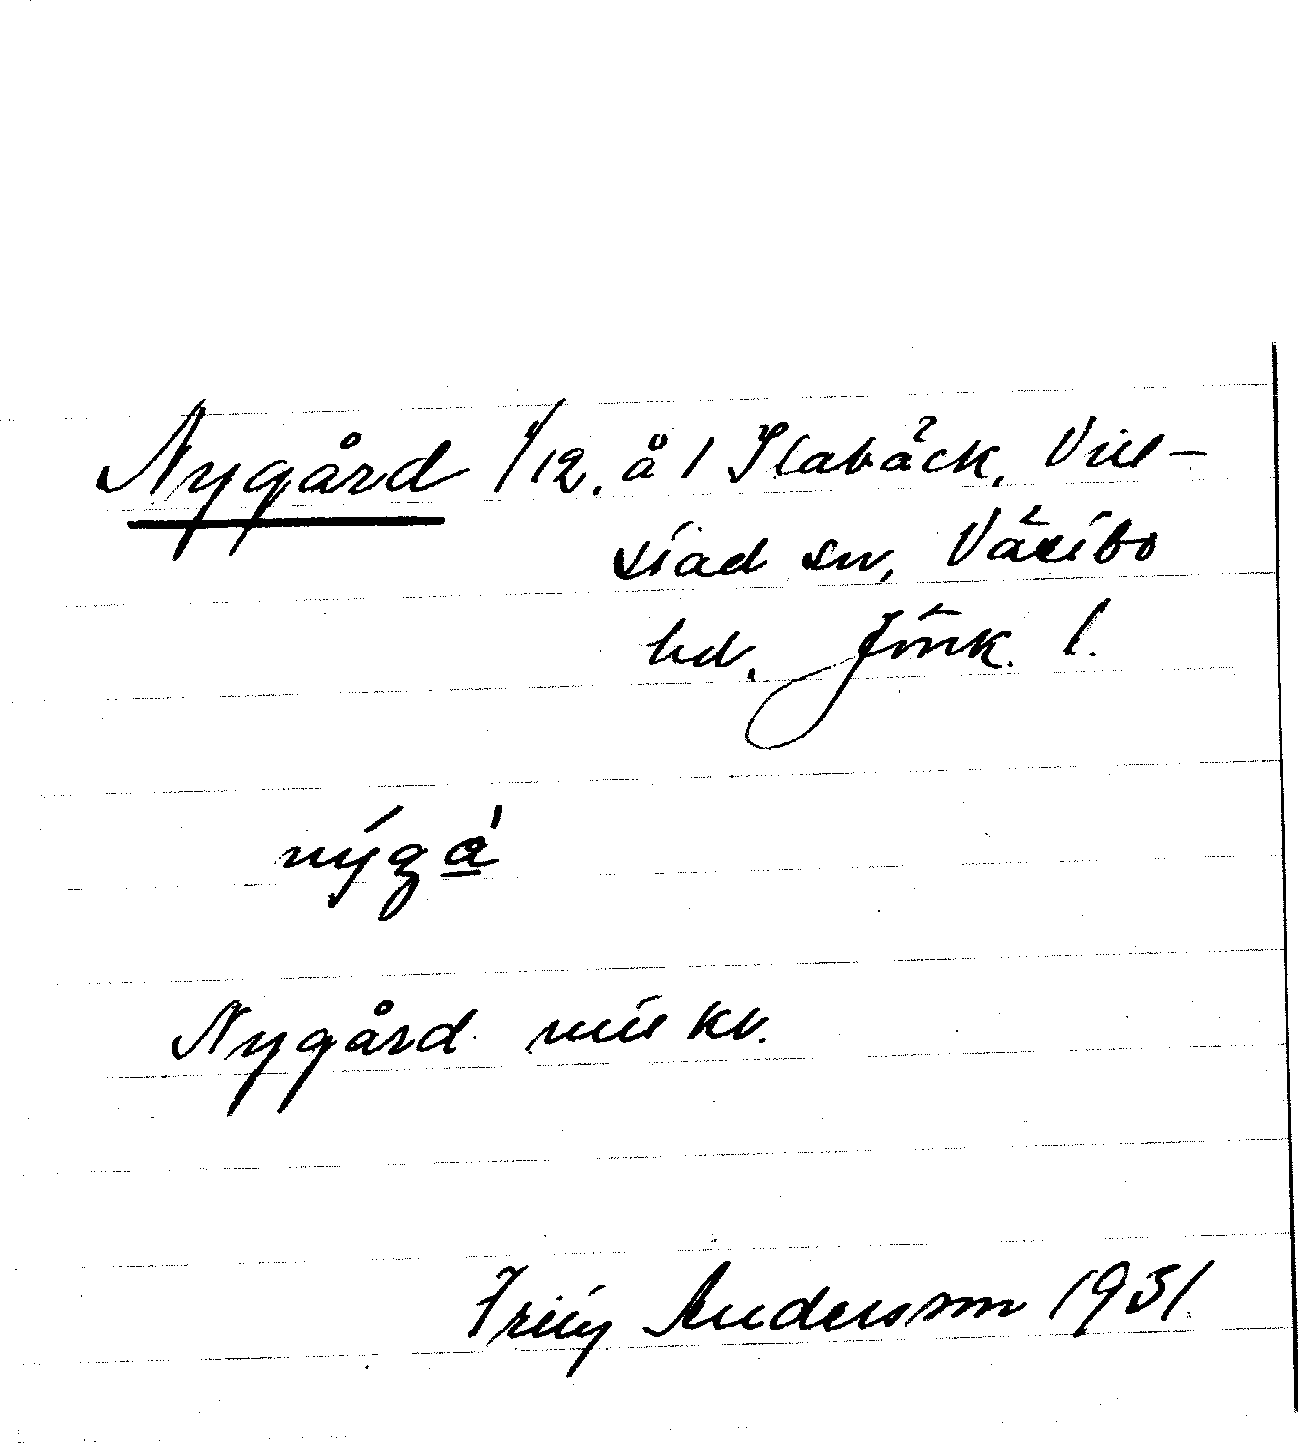 Nygård 1/12, å 1 Slabäck, Vill-
stad sn, Västbo
hd. Jönk. l.
nýgá
Nygård
Andersson 1931